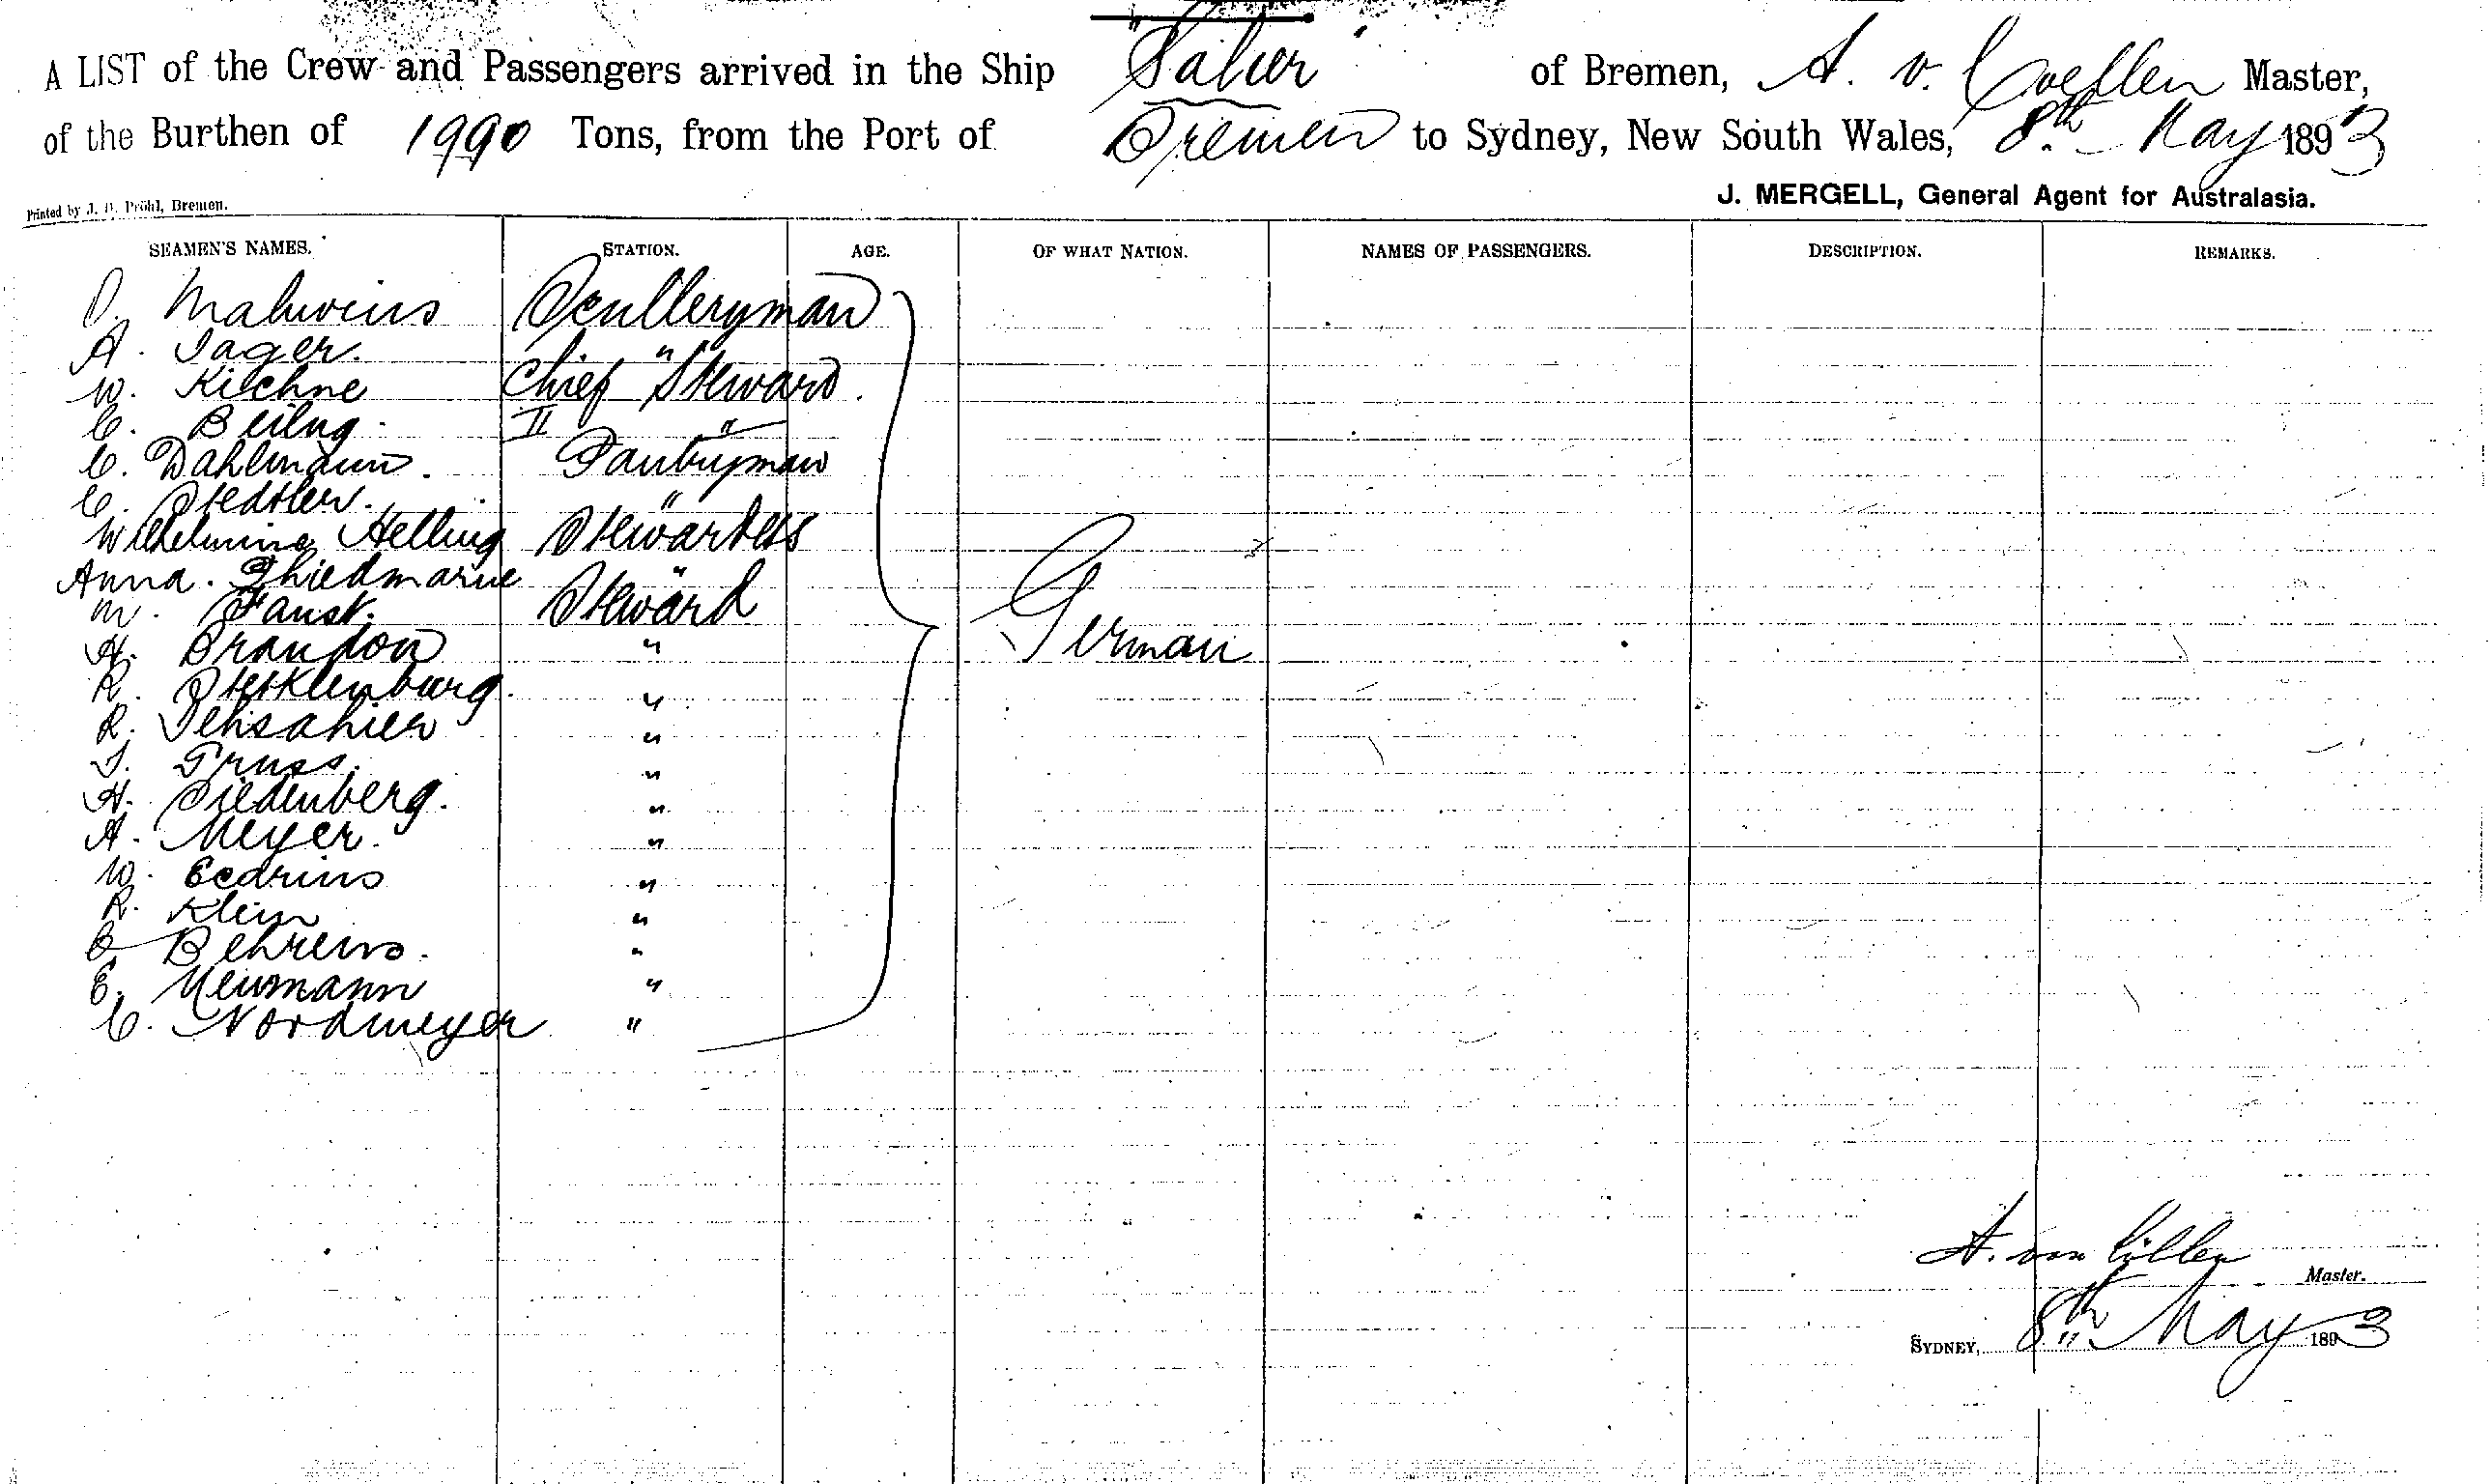 A LIST of the Crew and Passengers arrived in the Ship "Salier" of Bremen, A. v. Coellen Master,
of the Burthen of 1990 Tons, from the Port of Bremen to Sydney, New South Wales, 8th May 1893
J. MERGELL, General Agent for Australasia.
Printed by J. H. Pröhl, Bremen.
SEAMEN'S NAMES. STATION. AGE. OF WHAT NATION. NAMES OF PASSENGERS. DESCRIPTION. REMARKS.
Sculleryman
A. Jager. "
W. Kiehne Chief Steward.
C. Beilng II "
C. Dahlmann. Pantryman
C. "
Wilhelmine Helling Stewardess
Anna. Thiedmann "
M. Faust. Steward
H. Brandon " German
R. Sterklenburg. "
R. "
Gruss. "
H. Siedenberg. "
A. Meyer. "
W. "
R. Klein "
C. Behrens. "
E. Neumann "
C. Nordmeyer "
A. von Cöllen
Master.
SYDNEY, 8th May 1893